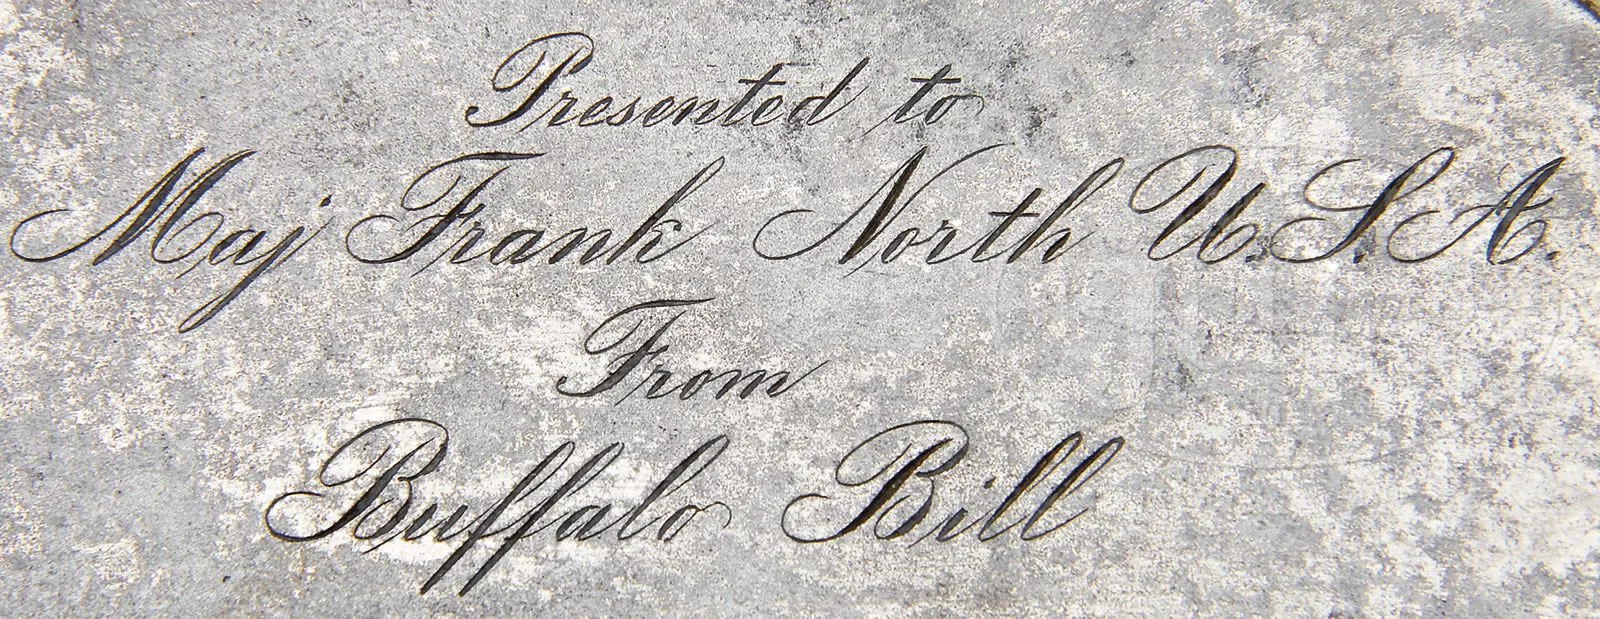 Presented to
Maj Frank North U.S.A.
From
Buffalo Bill